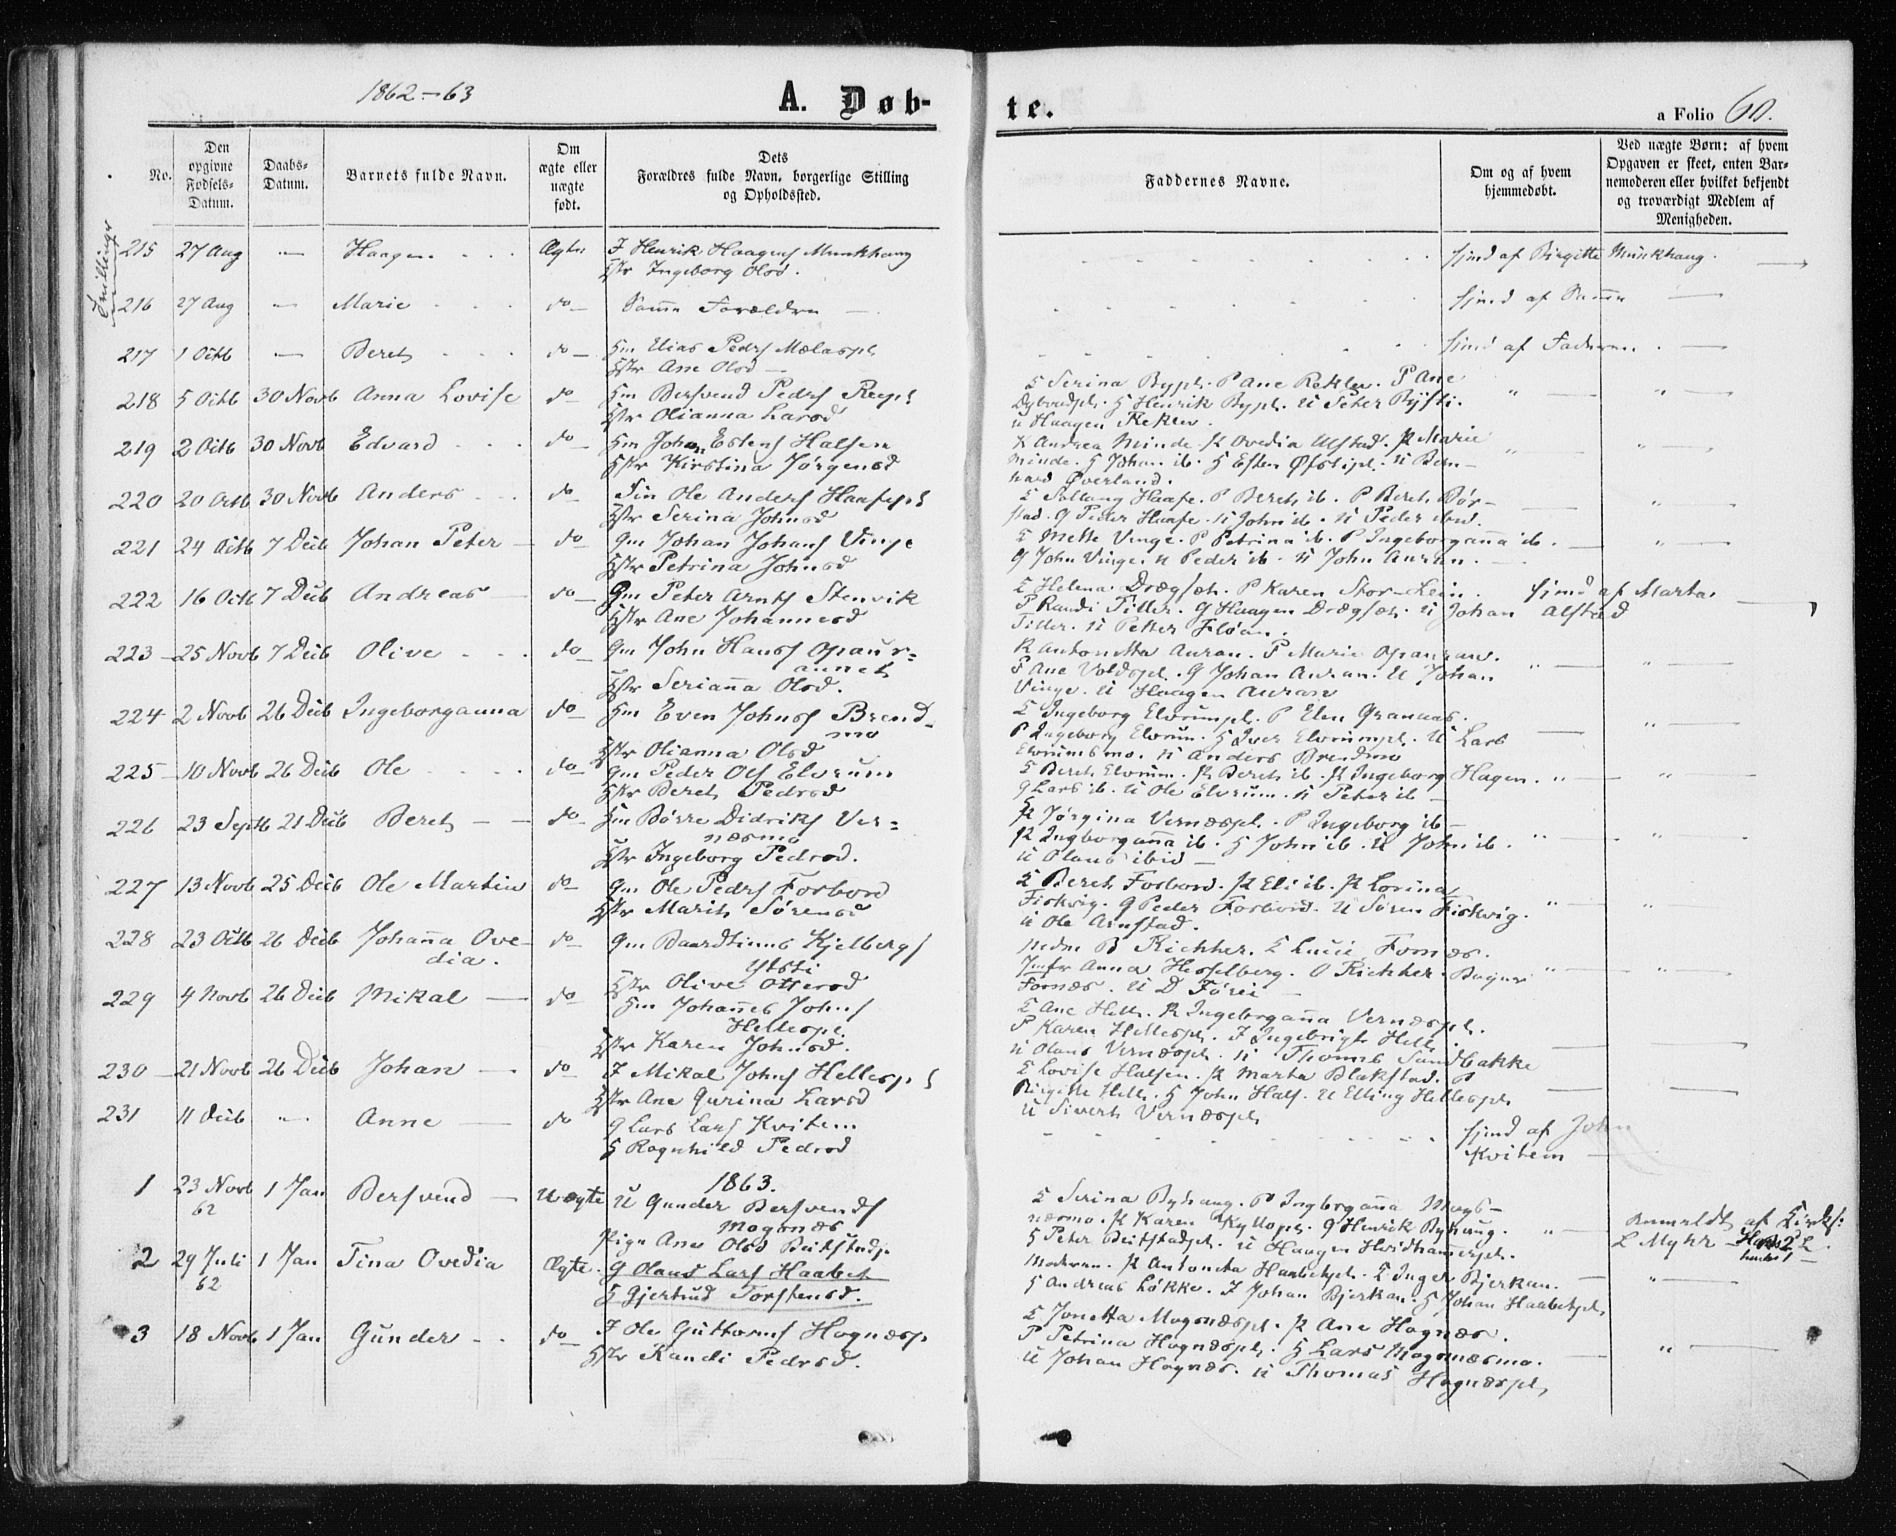 1862-63
A. Døb-
te.
a Folio 60.
No.
Den opgivne Fødsels-Datum.
Daabs-Datum.
Barnets fulde Navn.
Om ægte eller uægte født.
Dets Forældres fulde Navn, borgerlige Stilling og Opholdssted.
Faddernes Navne.
Om og af hvem hjemmedøbt.
Ved uægte Børn: af hvem Opgaven er skeet, enten Barnemoderen eller hvilket bekjendt og troværdigt Medlem af Menigheden.
Tvillinger
215 27 Aug — Haagen Ægte I Henrik Haagens Munkhaug
Hstr Ingeborg Olsd.
hjmd af Birgitte Munkhaug.
216 27 Aug — Marie do Samme Forældre
hjmd af Samme
217 1 Octb — Beret do Hm Elias Peders Mælaspl
Hstr Ane Olsd
hjmd af Faderen.
218 5 Octb 30 Novb Anna Lovise do Hm Bersvend Peders
Hstr Olianna Larsd
E Serina Bypl. P Ane Rekler. P Ane
Dybvadpl. H Henrik Bypl. U Peter
U Haagen Rekler.
219 2 Octb 30 Novb Edvard do Hm Johan Estens Halsen
Hstr Kirstina Jørgensd
K Andrea Minde. K Ovedia Alstad. K Marie
Minde. H Johan ib. H Esten Øfstipl. U Bern-
hard Øverland.
220 20 Octb 30 Novb Anders do Ole Anders
Hstr Serina Johnsd
E Solloug Haafe. P Beret ib. P Beret Bør-
stad. G Peder Haafe. U John ib. U Peder ibid.
221 24 Octb 7 Decb Johan Peter do Gm Johan Johans Vinge
Hstr Petrina Johnsd
E Mette Vinge. P Petrina ib. P Ingeborganna ib.
G John Vinge. U Peder ib. U John Auran.
222 16 Octb 7 Decb Andreas do Gm Peter Arnts Stenvik
Hstr Ane Johannesd
E Helena Drægset. P Karen Stor-Lein.
hjmd af Marta
P Randi Tiller. G Haagen Drægset. U Johan
Alstad
Tiller. U Petter Fløan.
223 25 Novb 7 Decb Olive do Gm John Hans Opaur-
annet
Hstr Serianna Olsd.
K Antonetta Auran. P Marie Opauran.
P Ane Voldspl. G Johan Auran. U Johan
Vinge. U Haagen Auran
224 2 Novb 26 Decb Ingeborganna do Hm Even Johns Brend-
mo
Hstr Olianna Olsd
E Ingeborg Elvrumpl. P Elen Granaas.
P Ingeborg Elvrum. H Iver Elvrumpl. U Lars
Elvrumsmo. U Anders Brendmo
225 10 Novb 26 Decb Ole do Gm Peder Ols Elvrum
Hstr Beret Pedersd
E Beret Elvrum. K Beret ib. K Ingeborg Hagen.
G Lars ib. U Ole Elvrum. U Peter ib
226 23 Septb 21 Decb Beret do Hm Børre Didriks Ver-
næsmo
Hstr Ingeborg Pedersd.
K Jørgina Vernæspl. P Ingeborg ib
K Ingborganna ib. H John ib. U John ib.
U Olaus ibid
227 13 Novb 25 Decb Ole Martin do Gm Ole Peders Forbord
Hstr Marit Sørensd
E Beret Forbord. K Eli ib. K Lorina
Fiskvig. G Peder Forbord. U Søren Fiskvig.
U Ole Arnstad.
228 23 Octb 26 Decb Johanna Ove-
dia.
do Gm Baardtinus Kjelbergs
Ytsti
Hstr Olive Ottersd
B Richter. E Lucie Fornes.
Jmfr Anna Hesselberg. O Richter.
Fornæs. U D
229 4 Novb 26 Decb Mikal do Hm Johannes Johns
Hellespl.
Hstr Karen Johnsd.
E Ane Helle. K Ingeborganna Vernæspl.
P Karen Hellespl. I Ingebrigt Helle.
U Olaus Vernæspl. U Thomas Sandbakke
230 21 Novb 26 Decb Johan do I Mikal Johns Hellespl
Hstr Ane Gurina Larsd
E Lovise Halsen. K Marta Blakstad. P
Birgitte Helle. H John Hals. U Elling Hellespl
U Sivert Vernæspl
231 11 Decb Anne do G Lars Lars Kvitem
H Ragnhild Pedersd
hjmd af John
Kvitem
1863.
1 23 Novb 62 1 Jan Bersvend Uægte U Gunder Bersvends
Mognæs
Pige Ane Olsd
E Serina Byhaug. P Ingborganna Mogs-
næsmo. K Karen Kyllopl. G Henrik Byhaug.
H Peter Beitstadpl. U Haagen
Anmeldt af
2 29 Juli 62 1 Jan Tina Ovedia Ægte G Olaus Lars Haabet
H Gjertrud Torstensd.
Moderen. K Antoneta Haabetpl. E Inger Bjerkan.
H Andreas Løkke. I Johan Bjerkan. H Johan Haabetpl.
3 18 Novb 1 Jan Gunder do I Ole Guttorms Hognæspl
Hstr Randi Pedersd.
E Jonetta Mogsnæspl. K Ane Hognæs.
P Petrina Hognæspl. H Lars Mogsnæsmo.
U Johan Hognæs. U Thomas Hognæspl